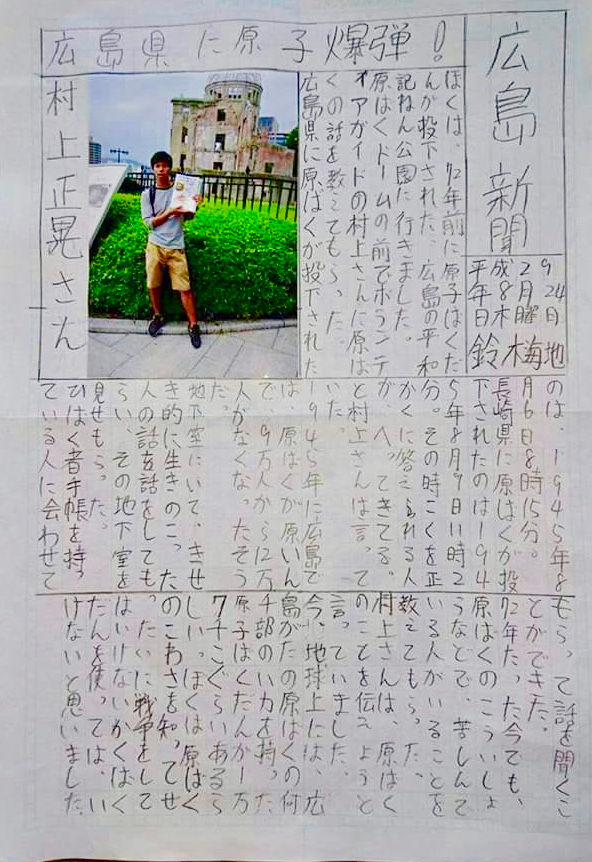 広島新聞
平成29年8月24日木曜日
鈴木梅地
広島県に原子爆弾!
村上正晃さん
ぼくは、72年前に原子ばくだ
んが投下された、広島の平和
記ねん公園に行きました。
原ばくドームの前でボランテ
ィアガイドの村上さんに原ば
くの話を教えてもらった。
広島県に原ばくが投下された
のは、1945年8
月6日8時15分。
長崎県に原ばくが投
下されたのは194
5年8月9日11時2
分。その時こくを正
かくに答えられる人
が、へってきてる。
と村上さんは言って
いた。
1945年に広島で
は、原ばくが原いん
で、9万人から12万
人がなくなったそう
だ。
地下室にいて、きせ
き的に生きのこった
人の話を話をしても
らい、その地下室を
見せもらった。
ひばく者手帳を持っ
ている人に会わせて
もらって話を聞くこ
とができた。
72年たった今でも、
原ばくのこういしょ
うなどで、苦しんで
いる人がいることを
教えてもらった。
村上さんは、原ばく
のことを伝えようと
言っていました。
今、地球上には、広
島がたの原ばくの何
千部のい力を持った
原子ばくだんが1万
7千こぐらいあるら
しい。ぼくは原ばく
のこわさを知ってせ
ったいに戦争をして
はいけないかくばく
だんを使っては、い
けないと思いました。